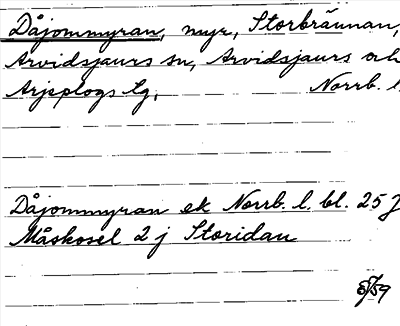 Dåjommyran, myr, Storbrännan,
Arvidsjaurs sn, Arvidsjaurs och
Arjeplogs lg, Norrb. l.
Dåjommyran ek Norrb. l. bl. 25 J
Måskosel 2 j Storidan